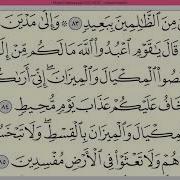 مِنَ ٱلظَّٰلِمِينَ بِبَعِيدٍ ٨٣ ۞ وَإِلَىٰ مَدْيَنَ
قَالَ يَٰقَوْمِ ٱعْبُدُوا۟ ٱللَّهَ مَا لَكُم مِّنْ إِلَٰ
قُصُوا۟ ٱلْمِكْيَالَ وَٱلْمِيزَانَ ۚ إِنِّىٓ أَرَىٰكُ
خَافُ عَلَيْكُمْ عَذَابَ يَوْمٍ مُّحِيطٍ ٨٤
مِكْيَالَ وَٱلْمِيزَانَ بِٱلْقِسْطِ ۖ وَلَا تَبْخَسُ
هُمْ وَلَا تَعْثَوْا۟ فِى ٱلْأَرْضِ مُفْسِدِينَ ٨٥